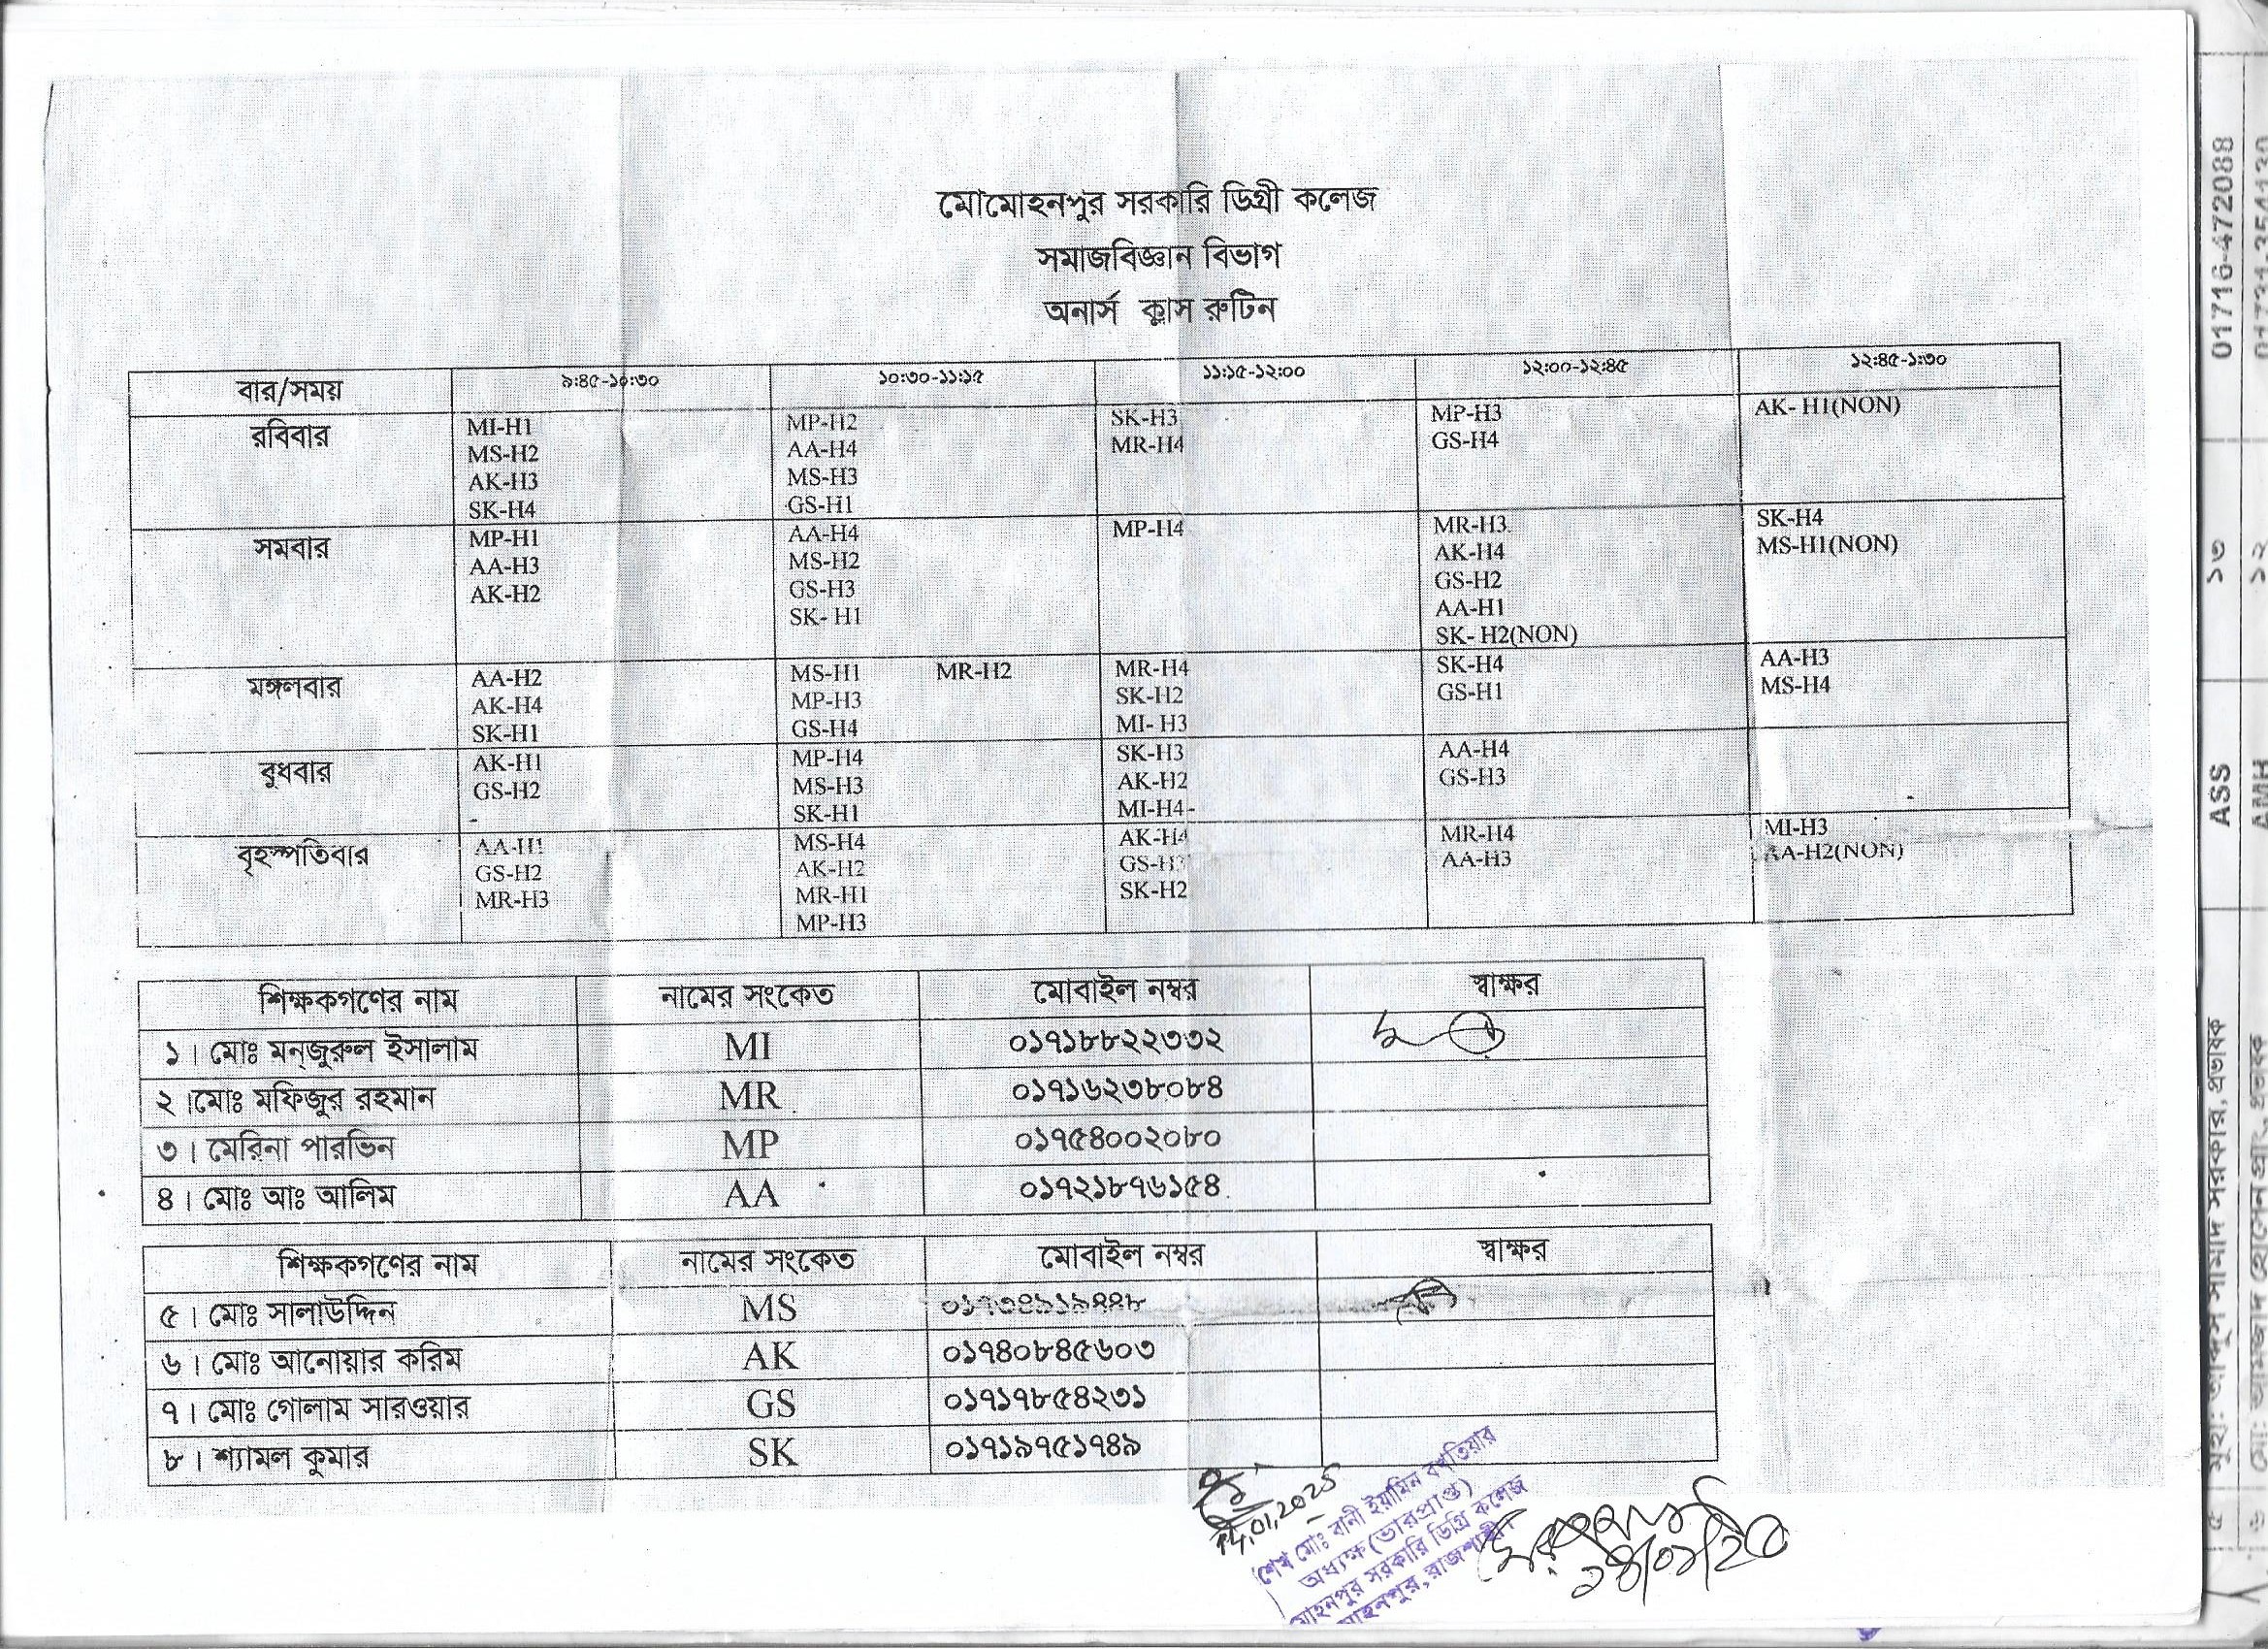 মোমোহনপুর সরকারি ডিগ্রী কলেজ
সমাজবিজ্ঞান বিভাগ
অনার্স ক্লাস রুটিন
বার/সময় ৯:৪৫-১০:৩০ ১০:৩০-১১:১৫ ১১:১৫-১২:০০ ১২:০০-১২:৪৫ ১২:৪৫-১:৩০
রবিবার MI-H1 MP-H2 SK-H3 MP-H3 AK- H1(NON)
MS-H2 AA-H4 MR-H4 GS-H4
AK-H3 MS-H3
SK-H4 GS-H1
সমবার MP-H1 AA-H4 MP-H4 MR-H3 SK-H4
AA-H3 MS-H2 AK-H4 MS-H1(NON)
AK-H2 GS-H3 GS-H2
SK- H1 AA-H1
SK- H2(NON)
মঙ্গলবার AA-H2 MS-H1 MR-H2 MR-H4 SK-H4 AA-H3
AK-H4 MP-H3 SK-H2 GS-H1 MS-H4
SK-H1 GS-H4 MI- H3
বুধবার AK-H1 MP-H4 SK-H3 AA-H4
GS-H2 MS-H3 AK-H2 GS-H3
- SK-H1 MI-H4-
বৃহস্পতিবার AA-H1 MS-H4 AK-H4 MR-H4 MI-H3
GS-H2 AK-H2 AA-H3 AA-H2(NON)
MR-H3 MR-H1 SK-H2
MP-H3
শিক্ষকগণের নাম নামের সংকেত মোবাইল নম্বর স্বাক্ষর
১। মোঃ মন্জুরুল ইসালাম MI ০১৭১৮৮২২৩৩২
২।মোঃ মফিজুর রহমান MR ০১৭১৬২৩৮০৮৪
৩। মেরিনা পারভিন MP ০১৭৫৪০০২০৮০
৪। মোঃ আঃ আলিম AA ০১৭২১৮৭৬১৫৪
শিক্ষকগণের নাম নামের সংকেত মোবাইল নম্বর স্বাক্ষর
৫। মোঃ সালাউদ্দিন MS
৬। মোঃ আনোয়ার করিম AK ০১৭৪০৮৪৫৬০৩
৭। মোঃ গোলাম সারওয়ার GS ০১৭১৭৮৫৪২৩১
৮। শ্যামল কুমার SK ০১৭১৯৭৫১৭৪৯
14.01.2025
শেখ মোঃ বানী ইয়ামিন বখতিয়ার
অধ্যক্ষ (ভারপ্রাপ্ত)
মোহনপুর সরকারি ডিগ্রি কলেজ
মোহনপুর, রাজশাহী
১৪/০১/২৫
৫ মুহা: আব্দুস সামাদ সরকার, প্রভাষক ASS ১৩ 01716-472088
৬ মো: আমজাদ হোসেন AMH ১২